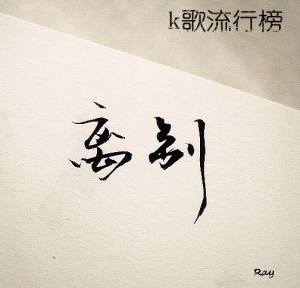 k歌流行榜
离别
Ray